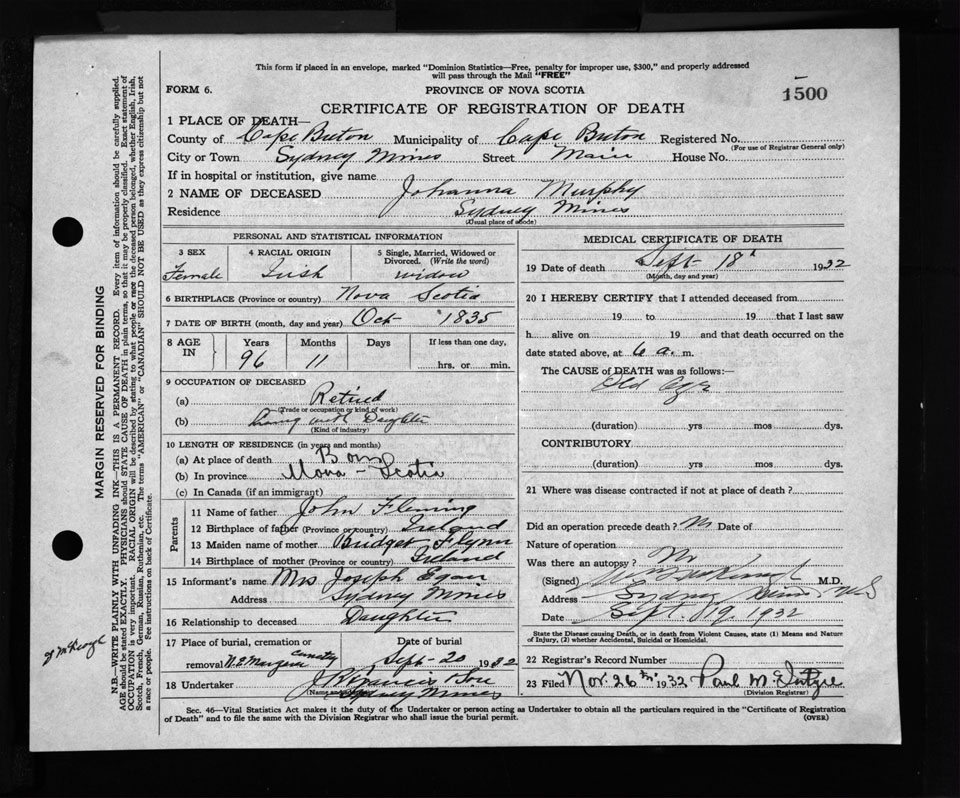 This form if placed in an envelope, marked "Dominion Statistics—Free, penalty for improper use, $300," and properly addressed
will pass through the Mail "FREE"
FORM 6.
PROVINCE OF NOVA SCOTIA
1500
CERTIFICATE OF REGISTRATION OF DEATH
1 PLACE OF DEATH—
County of Cape Breton Municipality of Cape Breton Registered No.
(For use of Registrar General only)
City or Town Sydney Mines Street Main House No.
If in hospital or institution, give name
2 NAME OF DECEASED Johanna Murphy
Residence Sydney Mines
(Usual place of abode)
PERSONAL AND STATISTICAL INFORMATION
3 SEX Female
4 RACIAL ORIGIN Irish
5 Single, Married, Widowed or Divorced. (Write the word) widow
6 BIRTHPLACE (Province or country) Nova Scotia
7 DATE OF BIRTH (month, day and year) Oct 1835
8 AGE IN Years Months Days If less than one day,
96 11 hrs. or min.
9 OCCUPATION OF DECEASED
(a) Retired
(Trade or occupation or kind of work)
(b) Living with Daughter
(Kind of industry)
10 LENGTH OF RESIDENCE (in years and months)
(a) At place of death Born
(b) In province Nova - Scotia
(c) In Canada (if an immigrant)
Parents
11 Name of father John Fleming
12 Birthplace of father (Province or country) Ireland
13 Maiden name of mother Bridget Flynn
14 Birthplace of mother (Province or country) Ireland
15 Informant's name Mrs Joseph Egan
Address Sydney Mines
16 Relationship to deceased Daughter
17 Place of burial, cremation or Date of burial
removal Cemetery Sept - 20 1932
18 Undertaker J Francis
Sydney Mines
MEDICAL CERTIFICATE OF DEATH
19 Date of death Sept 18 1932
(Month, day and year)
20 I HEREBY CERTIFY that I attended deceased from
19 to 19 that I last saw
h alive on 19 and that death occurred on
date stated above, at 6 a. m.
The CAUSE of DEATH was as follows:—
Old Age
(duration) yrs mos dys.
CONTRIBUTORY
(duration) yrs mos dys.
21 Where was disease contracted if not at place of death?
Did an operation precede death? No Date of
Nature of operation
Was there an autopsy? No
(Signed) M.D.
Address Sydney Mines N.S
Date Sept. 19, 1932
State the Disease causing Death, or in death from Violent Causes, state (1) Means and Nature
of Injury, and (2) whether Accidental, Suicidal or Homicidal.
22 Registrar's Record Number
23 Filed Nov. 26th 1932 Paul M.
(Division Registrar)
Sec. 46—Vital Statistics Act makes it the duty of the Undertaker or person acting as Undertaker to obtain all the particulars required in the "Certificate of Registration
of Death" and to file the same with the Division Registrar who shall issue the burial permit.
(OVER)
MARGIN RESERVED FOR BINDING
N.B.—WRITE PLAINLY WITH UNFADING INK—THIS IS A PERMANENT RECORD. Every item of information should be carefully supplied.
AGE should be stated EXACTLY. PHYSICIANS should STATE CAUSE OF DEATH in plain terms, so that it may be properly classified. Exact statement of
OCCUPATION is very important. RACIAL ORIGIN will be described by stating to what people or race the deceased person belonged, whether English, Irish,
Scotch, French, German, Russian, Ruthenian, etc. The terms "AMERICAN" or "CANADIAN" SHOULD NOT BE USED as they express citizenship but not
a race or people. See instructions on back of Certificate.